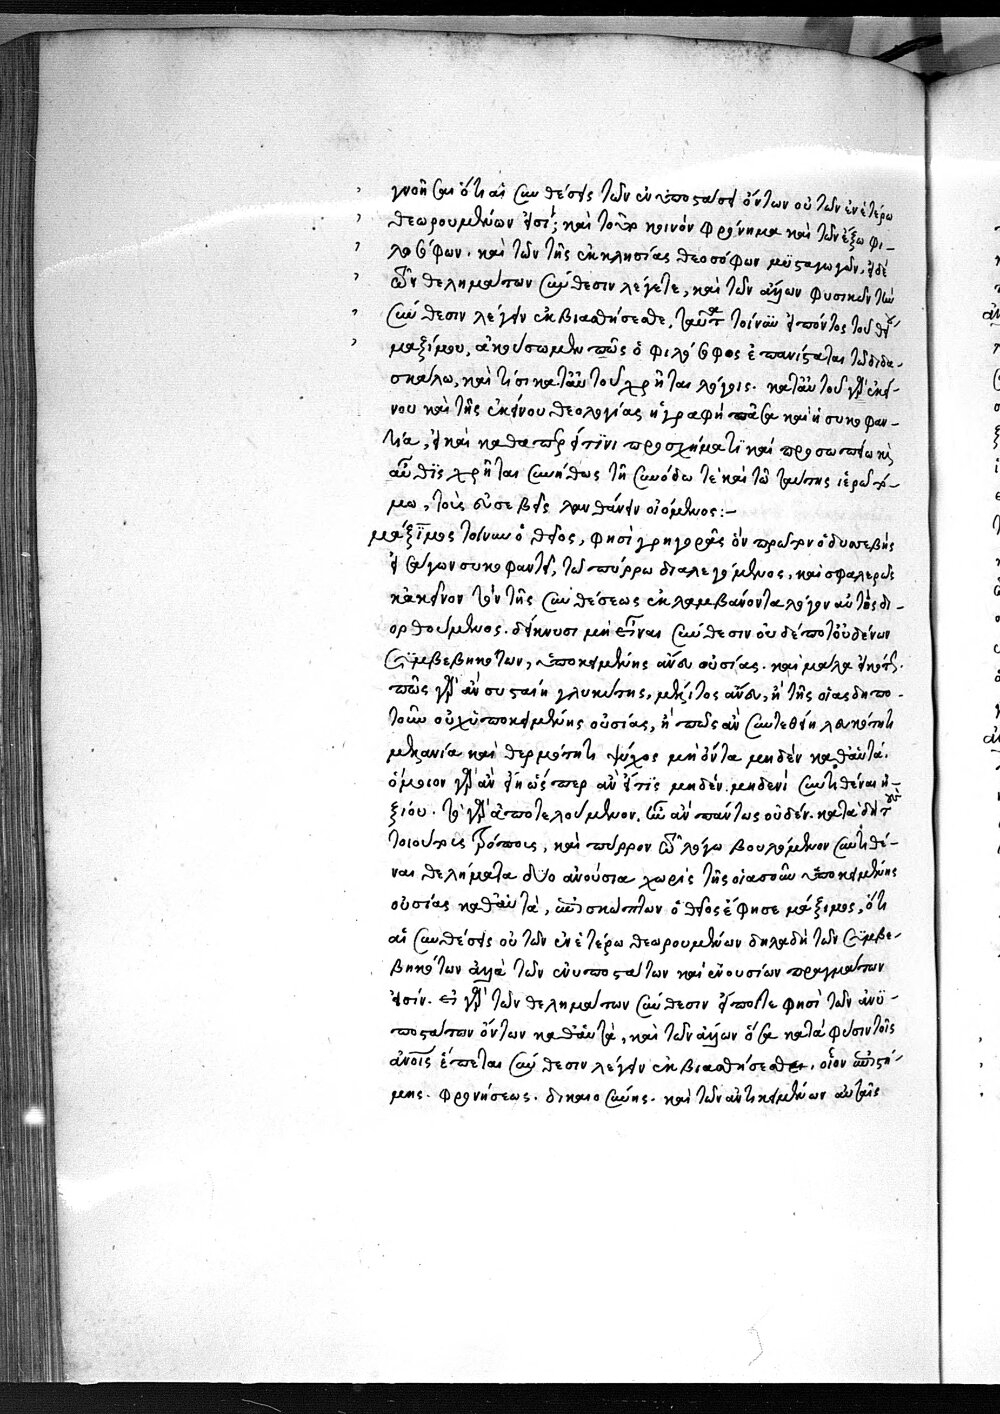 γνοῆσαι ὅτι αἱ συνθέσεις τῶν ἐν ὑποστάσει ὄντων οὐ τῶν ἐν ἑτέρω
θεωρουμένων εἰσί; καὶ τοῦτο κοινὸν φρόνημα καὶ τῶν ἔξω φι-
λοσόφων. καὶ τῶν τῆς ἐκκλησίας θεοσόφων μυσταγωγῶν. εἰ δὲ
τῶν θελημάτων σύνθεσιν λέγετε, καὶ τῶν ἄλλων φυσικῶν τὴν
σύνθεσιν λέγειν ἐκβιασθήσεσθε. ταῦτα τοίνυν εἰπόντος τοῦ θείου
μαξίμου, ἀκούσωμεν πῶς ὁ φιλόσοφος ἐπανίσταται τῶ διδα-
σκάλω, καὶ τίσι κατ' αὐτοῦ χρῆται λόγοις. κατ' αὐτοῦ γὰρ ἐκεί-
νου καὶ τῆς ἐκείνου θεολογίας ἡ γραφὴ πᾶσα καὶ ἡ συκοφαν-
τία, εἰ καὶ καθάπερ τινι προσχήματι καὶ προσωπείω
αὖθις χρῆται συνήθως τῆ συνόδω τὲ καὶ τῶ ταύτης ἱερῶ τό-
μω, τοὺς εὐσεβεῖς λανθάνειν οἰόμενος:–
μάξιμος τοίνυν ὁ θεῖος, φησὶ γρηγορᾶς ὃν πρώην ὁ δυσσεβὴς
εἰσάγων συκοφαντεῖ, τῶ πύρρω διαλεγόμενος, καὶ σφαλερῶς
κἀκεῖνον τὸν τῆς συνθέσεως ἐκλαμβάνοντα λόγον αὐτὸς δι-
ορθούμενος. δείκνυσι μὴ εἶναι σύνθεσιν οὐδέποτ' οὐδένων
συμβεβηκότων, ὑποκειμένης ἄνευ οὐσίας. καὶ μάλα εἰκότως.
πῶς γὰρ ἂν συσταίη γλυκύτης, μέλιτος ἄνευ, ἢ τῆς οἱασδηπο-
τοῦν οὐχ ὑποκειμένης οὐσίας, ἢ πῶς ἂν συντεθείη λευκότητι
μελανία καὶ θερμότητι ψύχος μὴ ὄντα μηδὲν καθ' αὑτά.
ὅμοιον γὰρ ἂν εἴη ὥσπερ ἂν εἴ τις μηδὲν μηδενὶ συντιθέναι ἠ-
ξίου. τὸ γὰρ ἀποτελούμενον, ἦν ἂν πάντως οὐδέν. κατὰ δὴ τοὺς
τοιούτους τρόπους, καὶ πύρρον τῶ λόγω βουλόμενον συντιθέ-
ναι θελήματα δύο ἀνούσια χωρὶς τῆς οἱασοῦν ὑποκειμένης
οὐσίας καθ' αὑτὰ, ἐπισκώπτων ὁ θεῖος ἔφησε μάξιμος, ὅτι
αἱ συνθέσεις οὐ τῶν ἐν ἑτέρω θεωρουμένων δηλαδὴ τῶν συμβε-
βηκότων ἀλλὰ τῶν ἐνυποστάτων καὶ ἐνουσίων πραγμάτων
εἰσίν. εἰ γὰρ τῶν θελημάτων σύνθεσιν εἴποιτε φησὶ τῶν ἀνυ-
ποστάτων ὄντων καθ' αὑτὰ, καὶ τῶν ἄλλων ὅσα κατὰ φύσιν τοῖς
ἀνοις ἕπεται σύνθεσιν λέγειν ἐκβιασθήσεσθε. οἷον ἐπιστή-
μης. φρονήσεως. δικαιοσύνης. καὶ τῶν ἀντικειμένων αὐταῖς